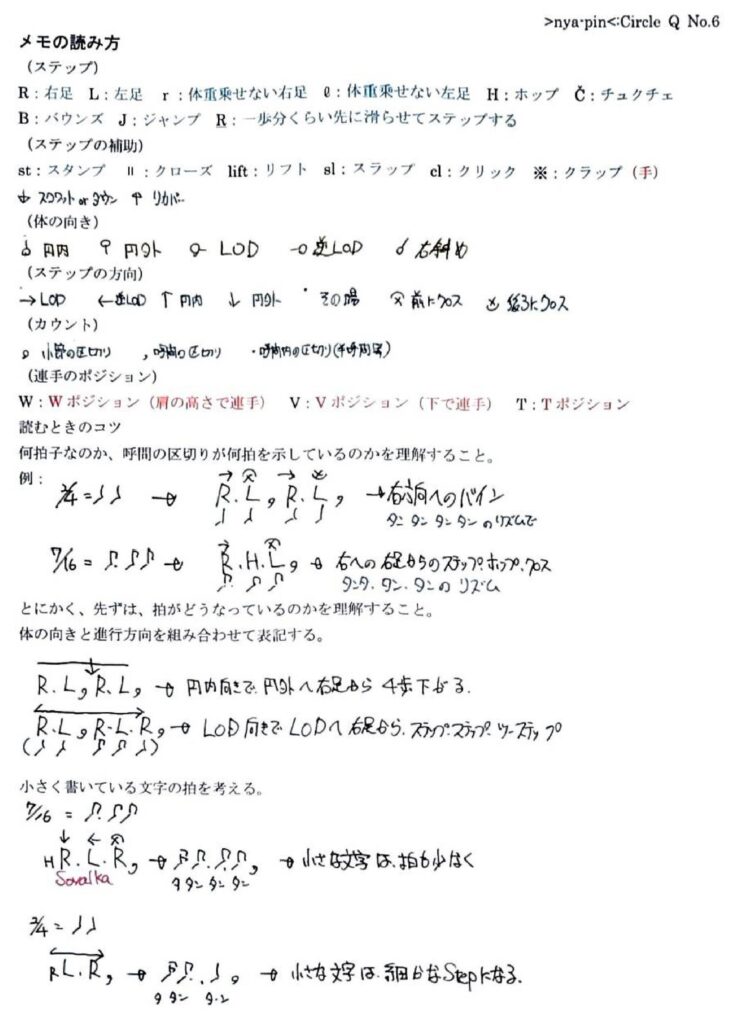 >nya-pin<:Circle Q No.6
メモの読み方
(ステップ)
R:右足 L:左足 r:体重乗せない右足 ℓ:体重乗せない左足 H:ホップ Č:チュクチェ
B:バウンズ J:ジャンプ R:一歩分くらい先に滑らせてステップする
(ステップの補助)
st:スタンプ 〃:クローズ lift:リフト sl:スラップ cl:クリック ※:クラップ(手)
↓ スクワット or ダウン ↑ リカバー
(体の向き)
円内 円外 LOD 逆LOD 右斜め
(ステップの方向)
→LOD ←逆LOD ↑円内 ↓円外 ・その場 前にクロス 後ろにクロス
(カウント)
小節の区切り ,呼間の区切り ・呼間内の区切り(半呼間等)
(連手のポジション)
W:Wポジション(肩の高さで連手) V:Vポジション(下で連手) T:Tポジション
読むときのコツ
何拍子なのか、呼間の区切りが何拍を示しているのかを理解すること。
例:
2/4=♪♪ → R.L,R.L, →右方向へのバイン
タン タン タン タンのリズムで
7/16=♪.♪♪ → R.H.L, → 右への右足からのステップ.ホップ.クロス
タンタ.タン.タンの リズム
とにかく、先ずは、拍がどうなっているのかを理解すること。
体の向きと進行方向を組み合わせて表記する。
R.L,R.L, → 円内向きで、円外へ右足から 4歩下がる.
R.L,R.L.R, → LOD向きで LODへ 右足から.ステップ.ステップ.ツーステップ
小さく書いている文字の拍を考える。
7/16 = ♪.♪♪
↓ ←
HR.L.R, → ♪♪.♪♪, → 小さな文字は、拍も少なく
Sovalka タタン タン タン
2/4=♪♪
RL.R, → ♪♪.♪, → 小さな文字は、細かなStepになる.
タタン タン